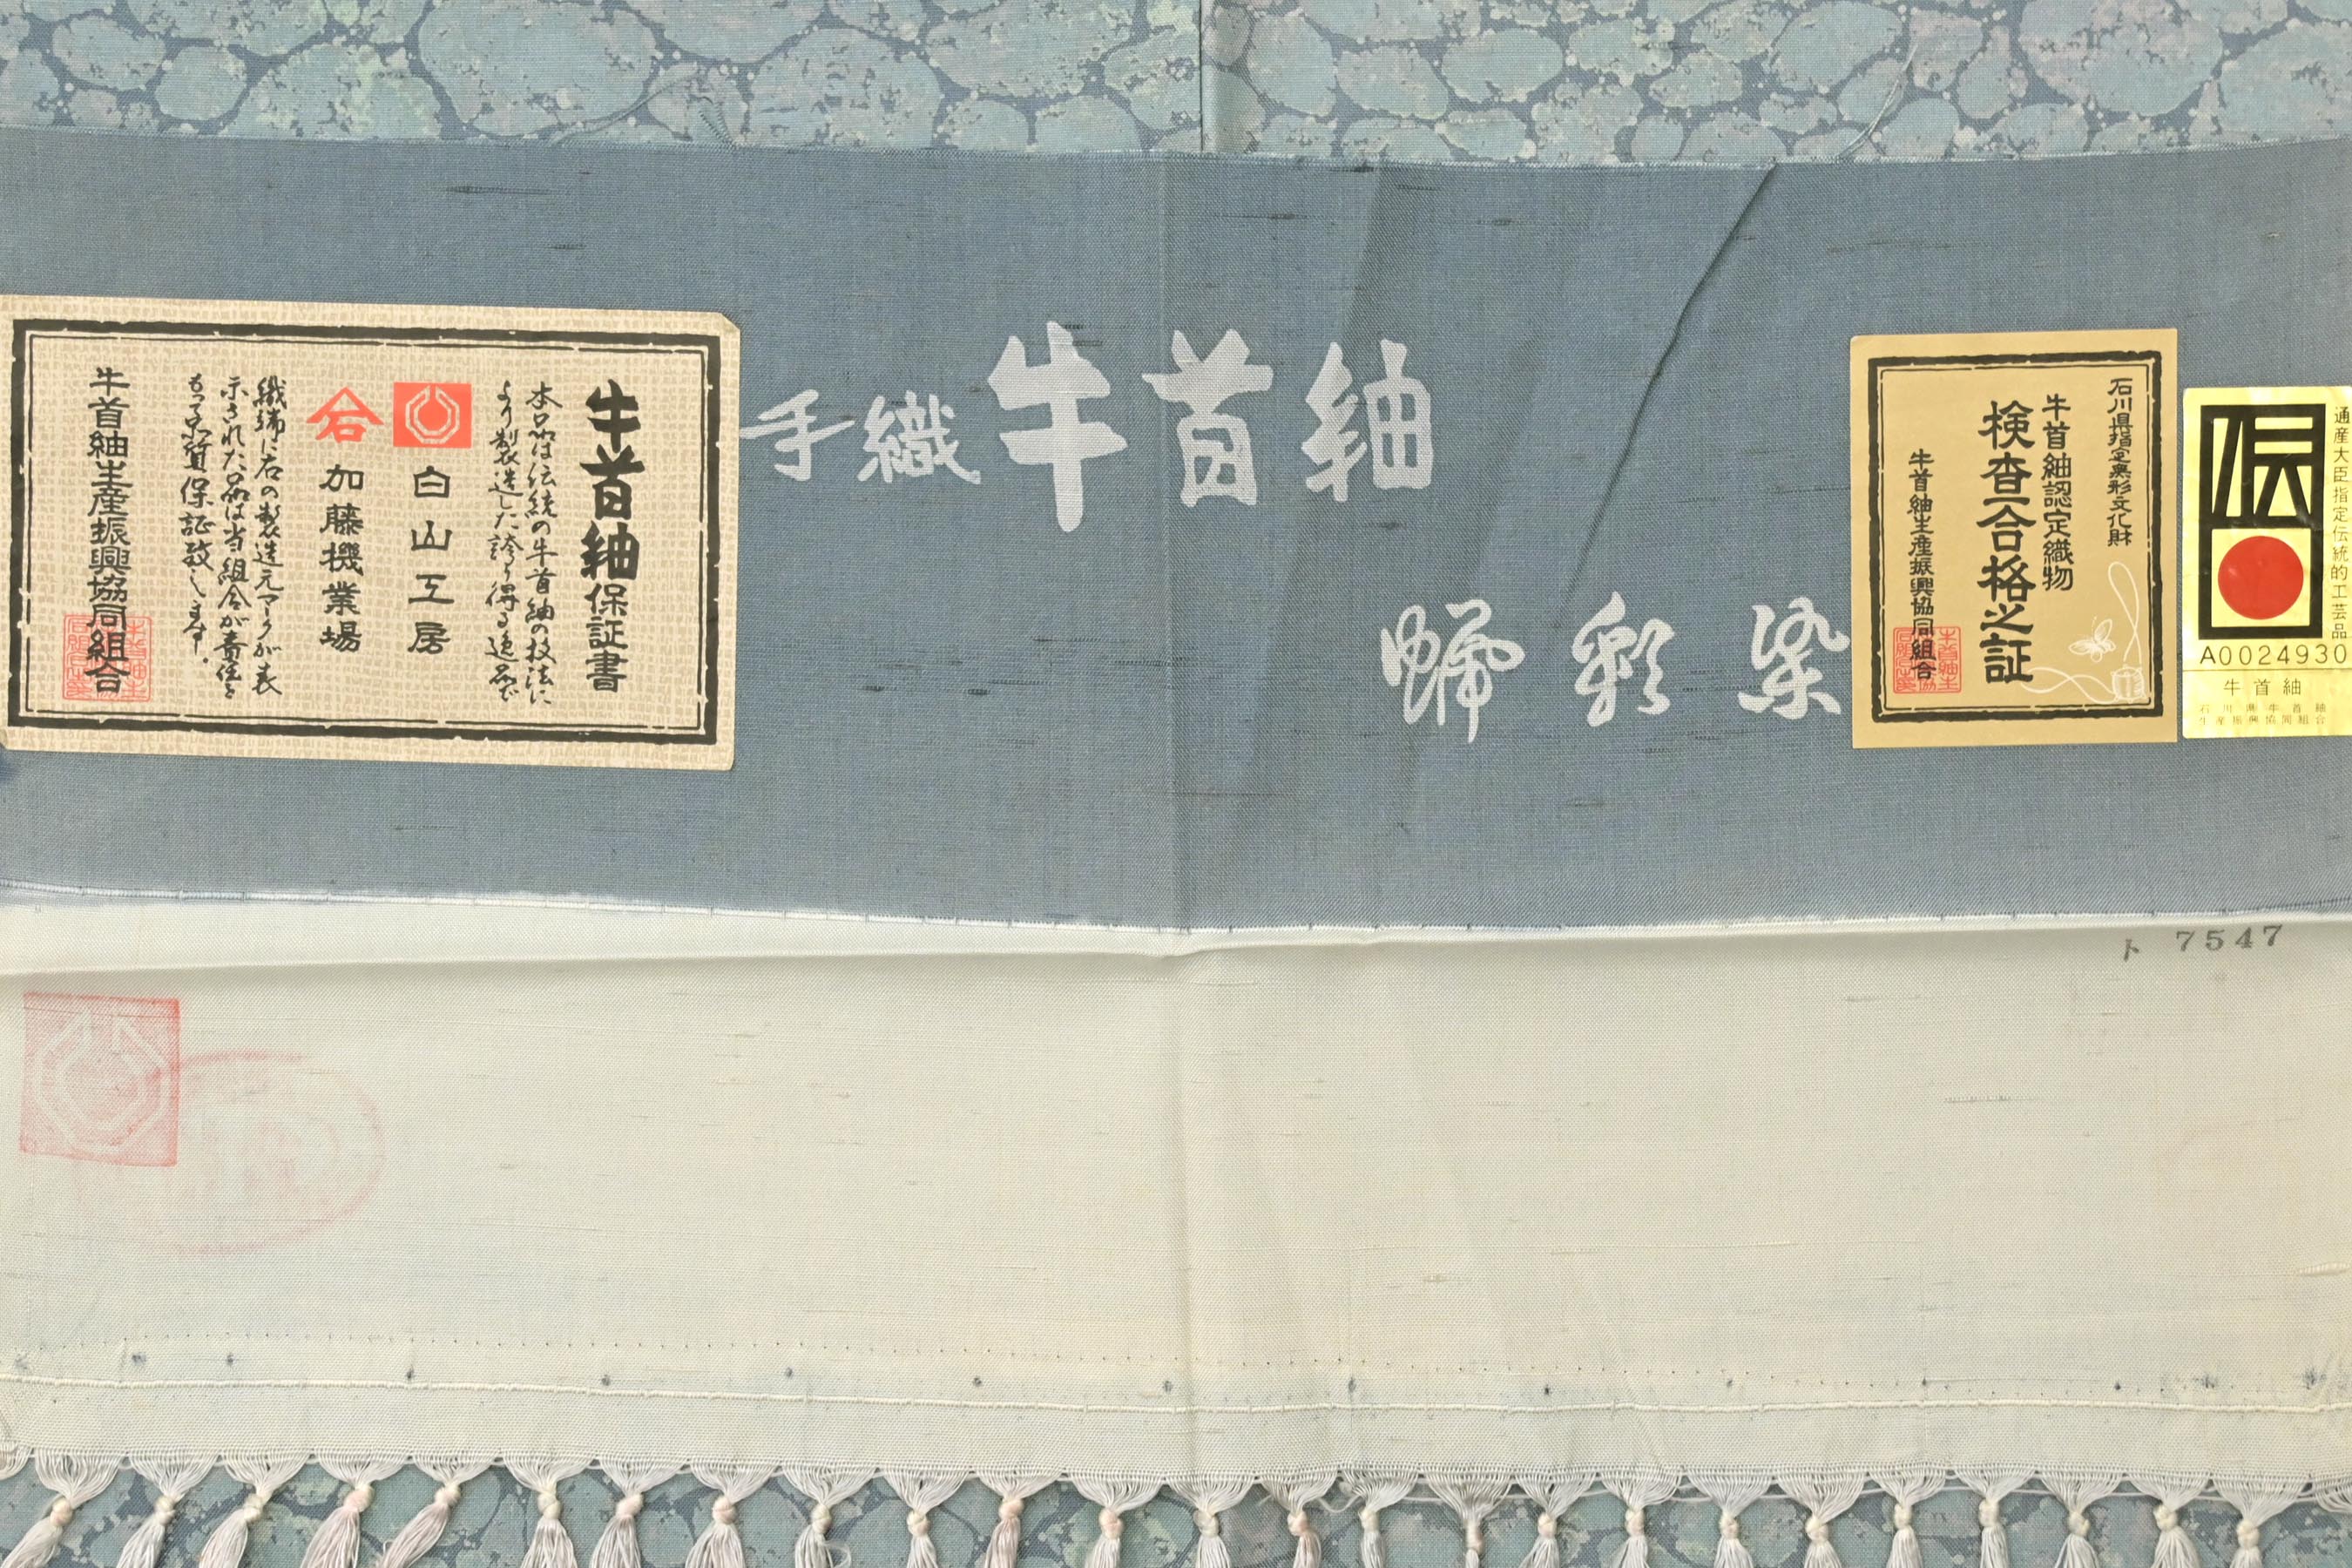 牛首紬保証書
本品は伝統の牛首紬の技法に
より製造した誇り得る逸品で
白山工房
加藤機業場
織端に右の製造元マークが表
示された品は当組合が責任を
もって品質保証致します。
牛首紬生産振興協同組合
手織牛首紬
彩染
石川県指定無形文化財
牛首紬認定織物
検査合格之証
牛首紬生産振興協同組合
伝
通産大臣指定伝統的工芸品
A0024930
牛首紬
石川県牛首紬
生産振興協同組合
ト 7547